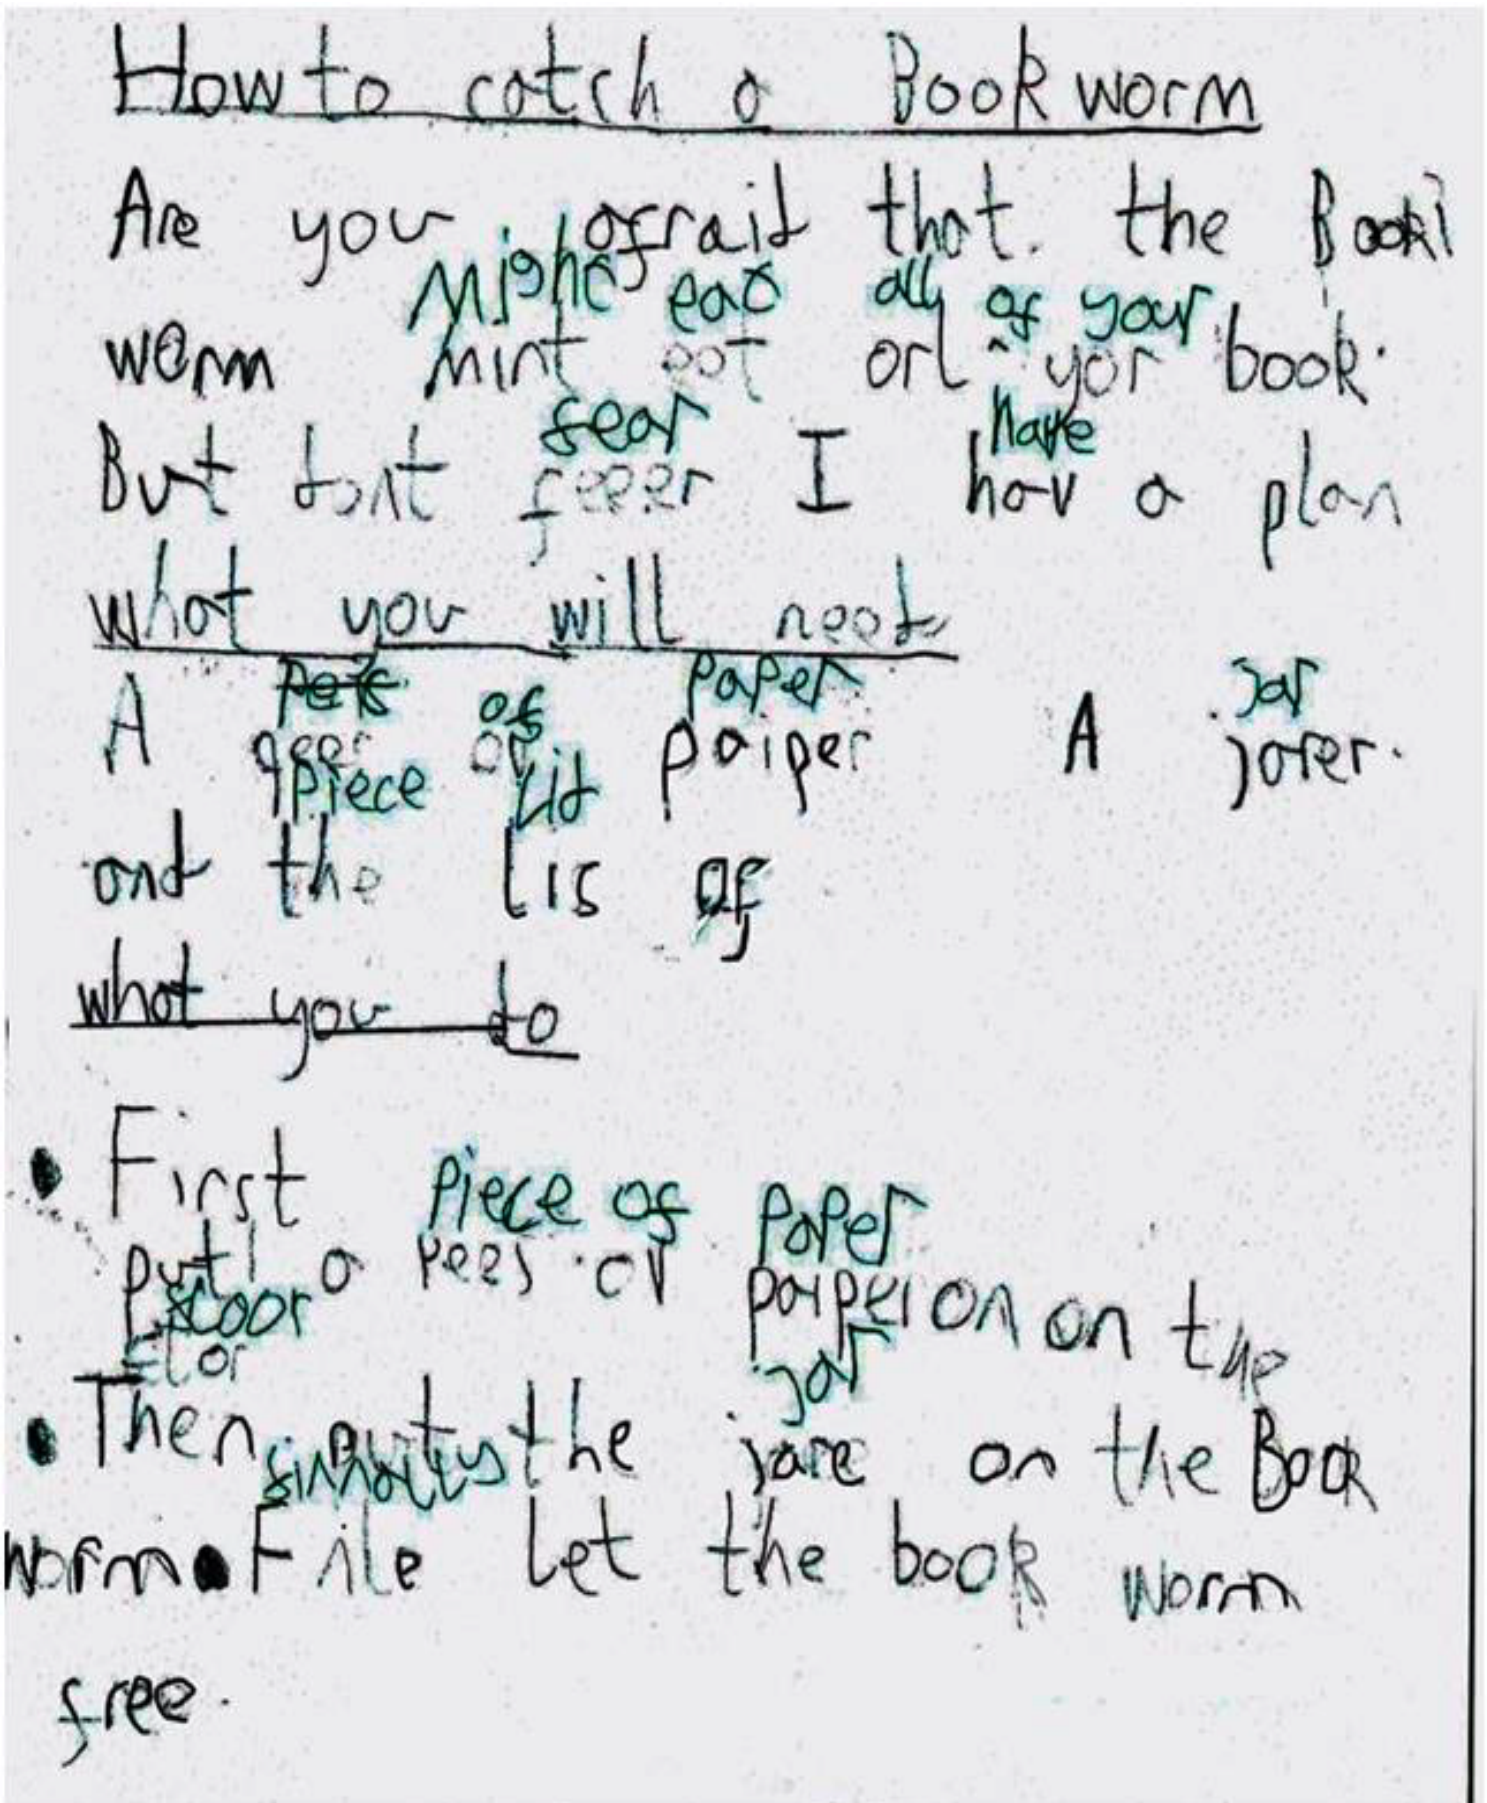 How to catch a Bookworm
Are you afraid that. the Book
might eat all of your
worm mint eat orl ^ yor book.
fear have
But dont feeer I hav a plan
what you will need
of paper jar
A ov paiper A jarer.
piece Lid
and the lis of
what you do
• First
piece of paper
put a pees ov paiper on on the
floor
jar
• Then put the jare on the Book
finnally
worm • File let the book worm
free.